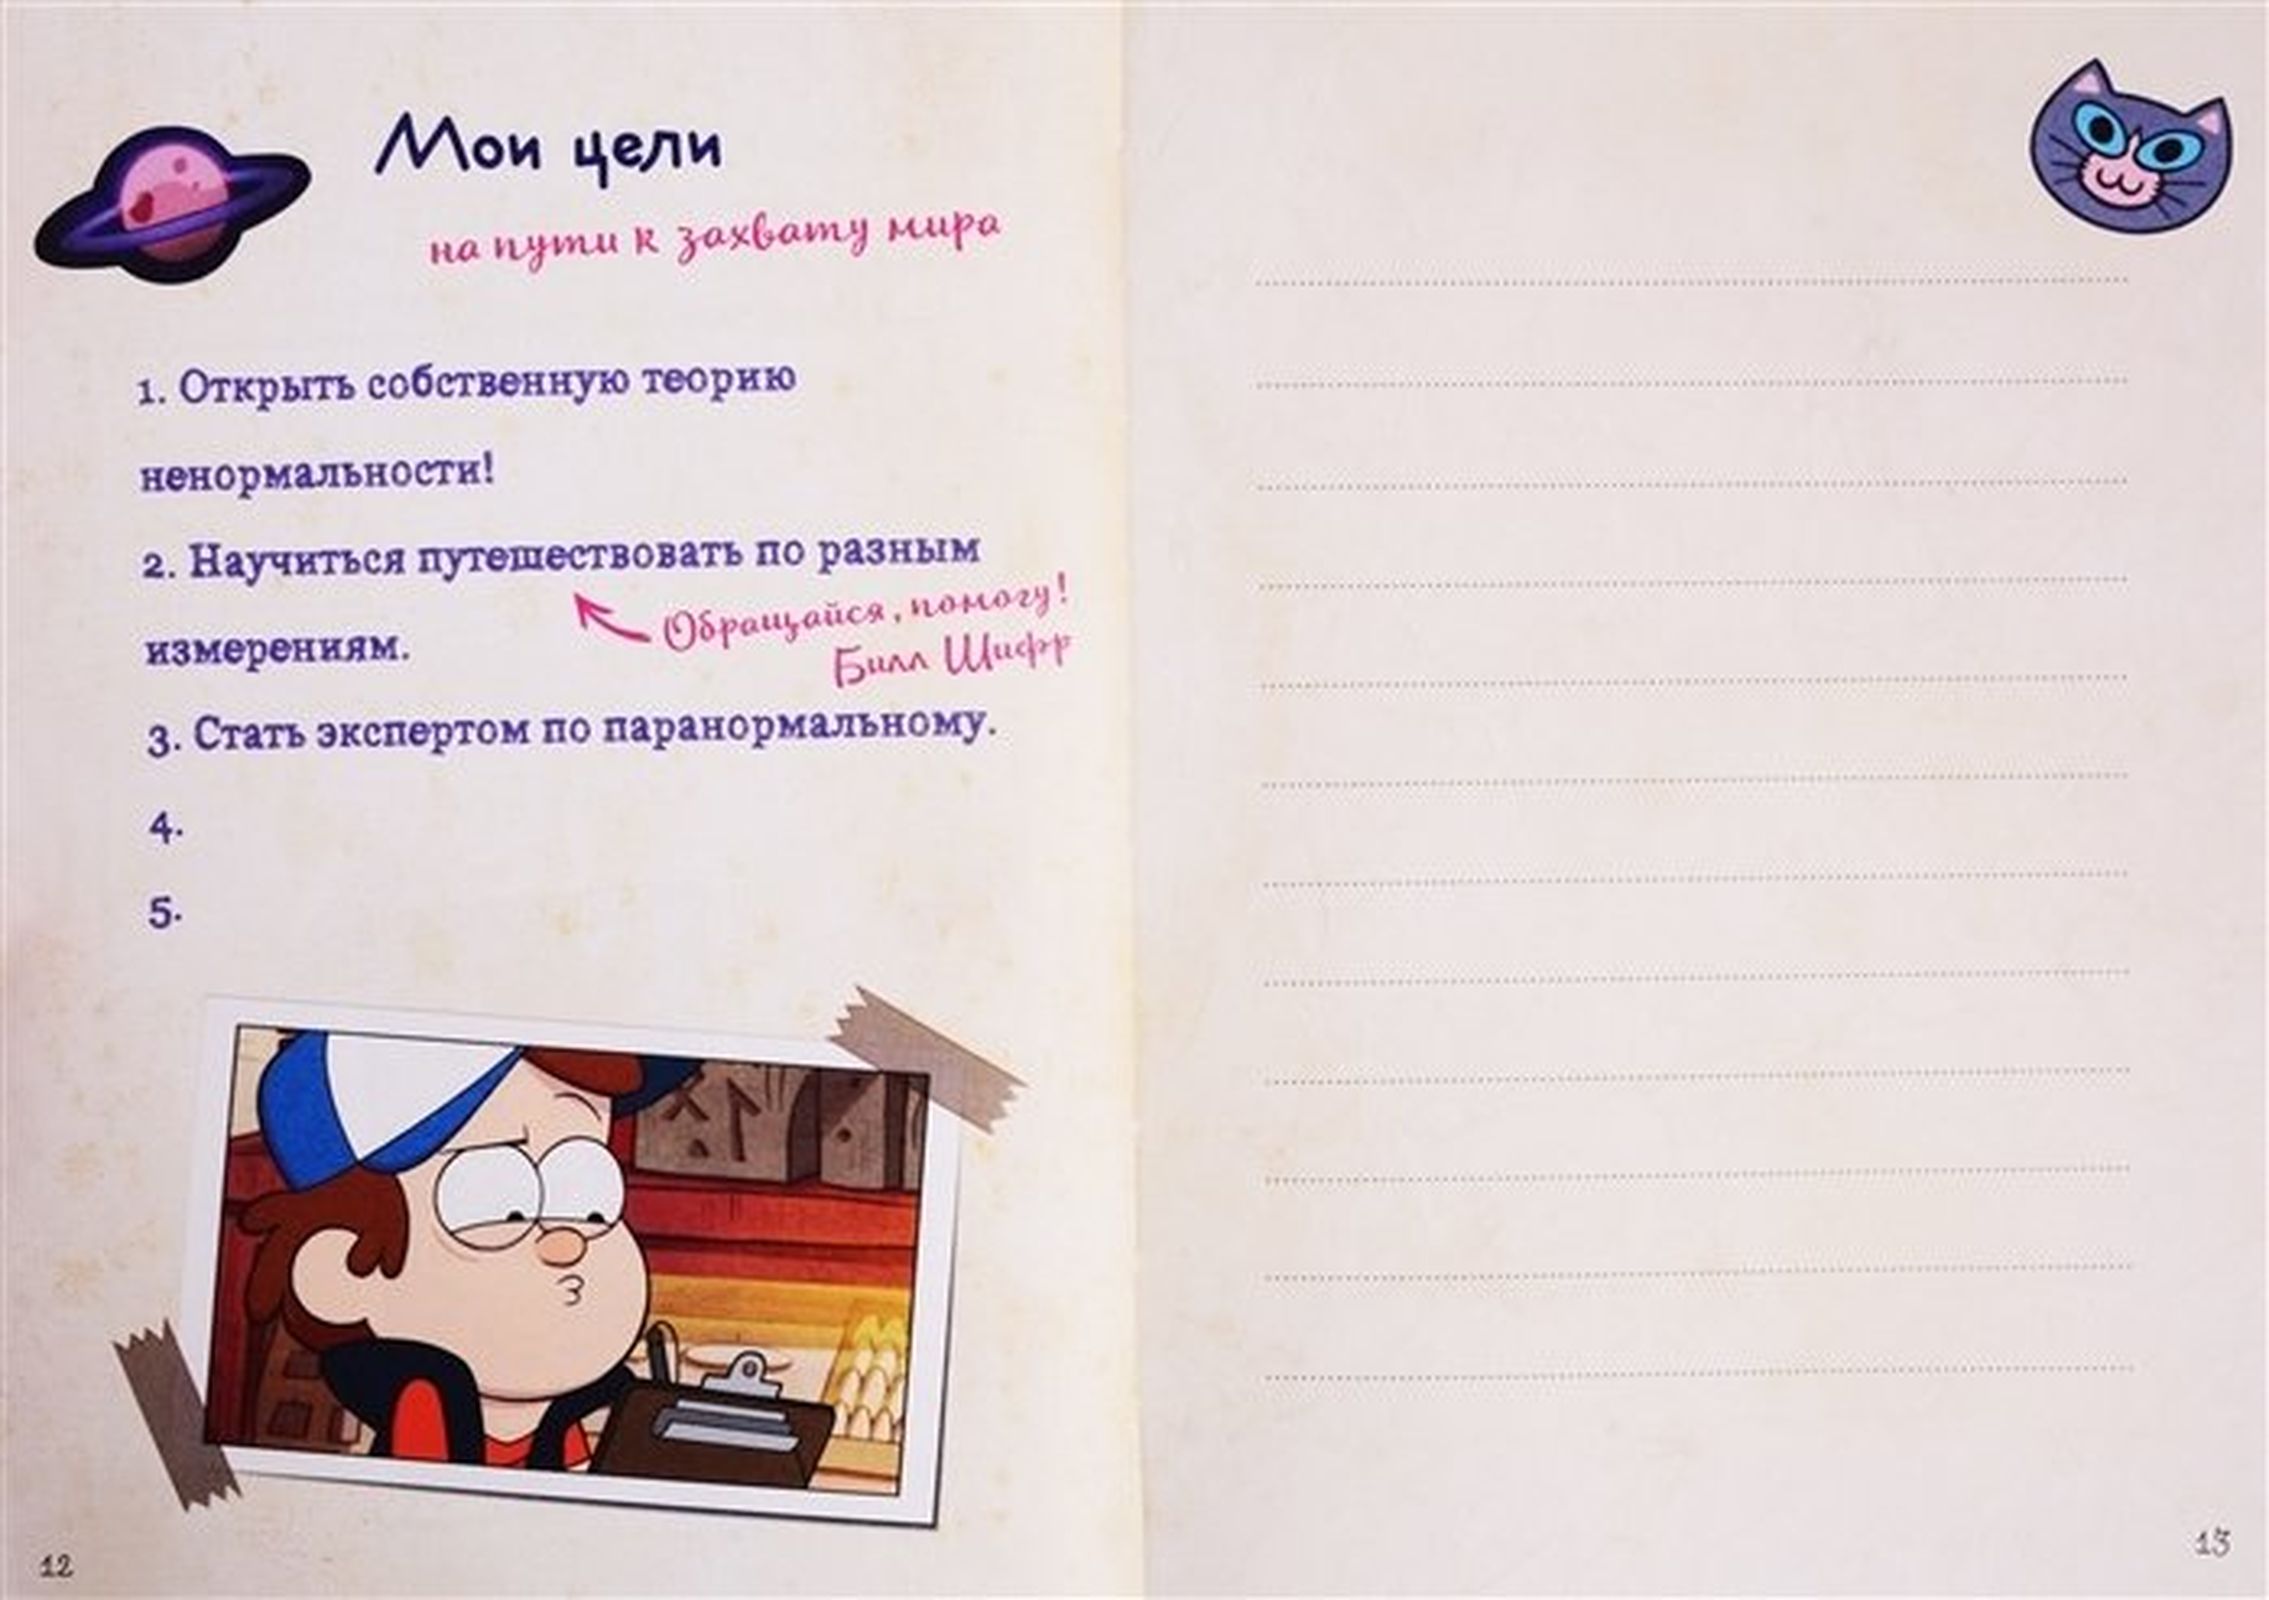 Мои цели
на пути к захвату мира
1. Открыть собственную теорию
ненормальности!
2. Научиться путешествовать по разным
измерениям.
Обращайся, помогу!
Билл Шифр
3. Стать экспертом по паранормальному.
4.
5.
12
13